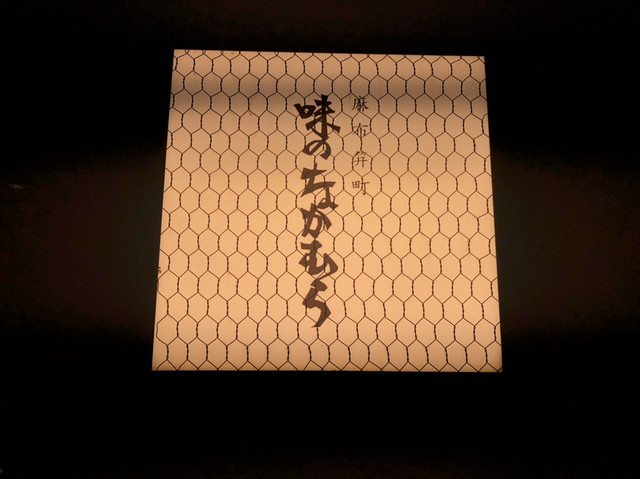 麻布笄町
味のなかむら